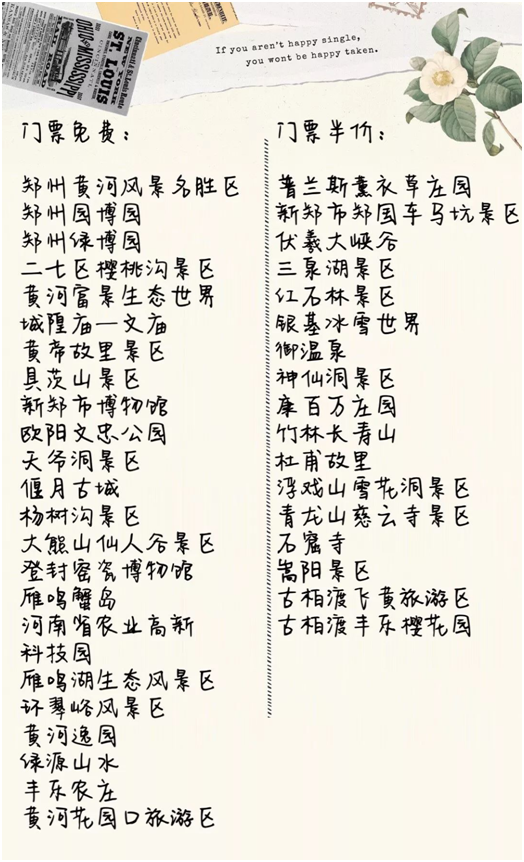 ST. LOUIS
OHIO & MISSISSIPPI
If you aren't happy single,
you wont be happy taken.
门票免费：
郑州黄河风景名胜区
郑州园博园
郑州绿博园
二七区樱桃沟景区
黄河富景生态世界
城隍庙—文庙
黄帝故里景区
具茨山景区
新郑市博物馆
欧阳文忠公园
天爷洞景区
偃月古城
杨树沟景区
大熊山仙人谷景区
登封窑瓷博物馆
雁鸣蟹岛
河南省农业高新
科技园
雁鸣湖生态风景区
环翠峪风景区
黄河逸园
绿源山水
丰乐农庄
黄河花园口旅游区
门票半价：
普兰斯薰衣草庄园
新郑市郑国车马坑景区
伏羲大峡谷
三泉湖景区
红石林景区
银基冰雪世界
御温泉
神仙洞景区
康百万庄园
竹林长青山
杜甫故里
浮戏山雪花洞景区
青龙山慈云寺景区
石窟寺
嵩阳景区
古柏渡飞黄旅游区
古柏渡丰乐樱花园